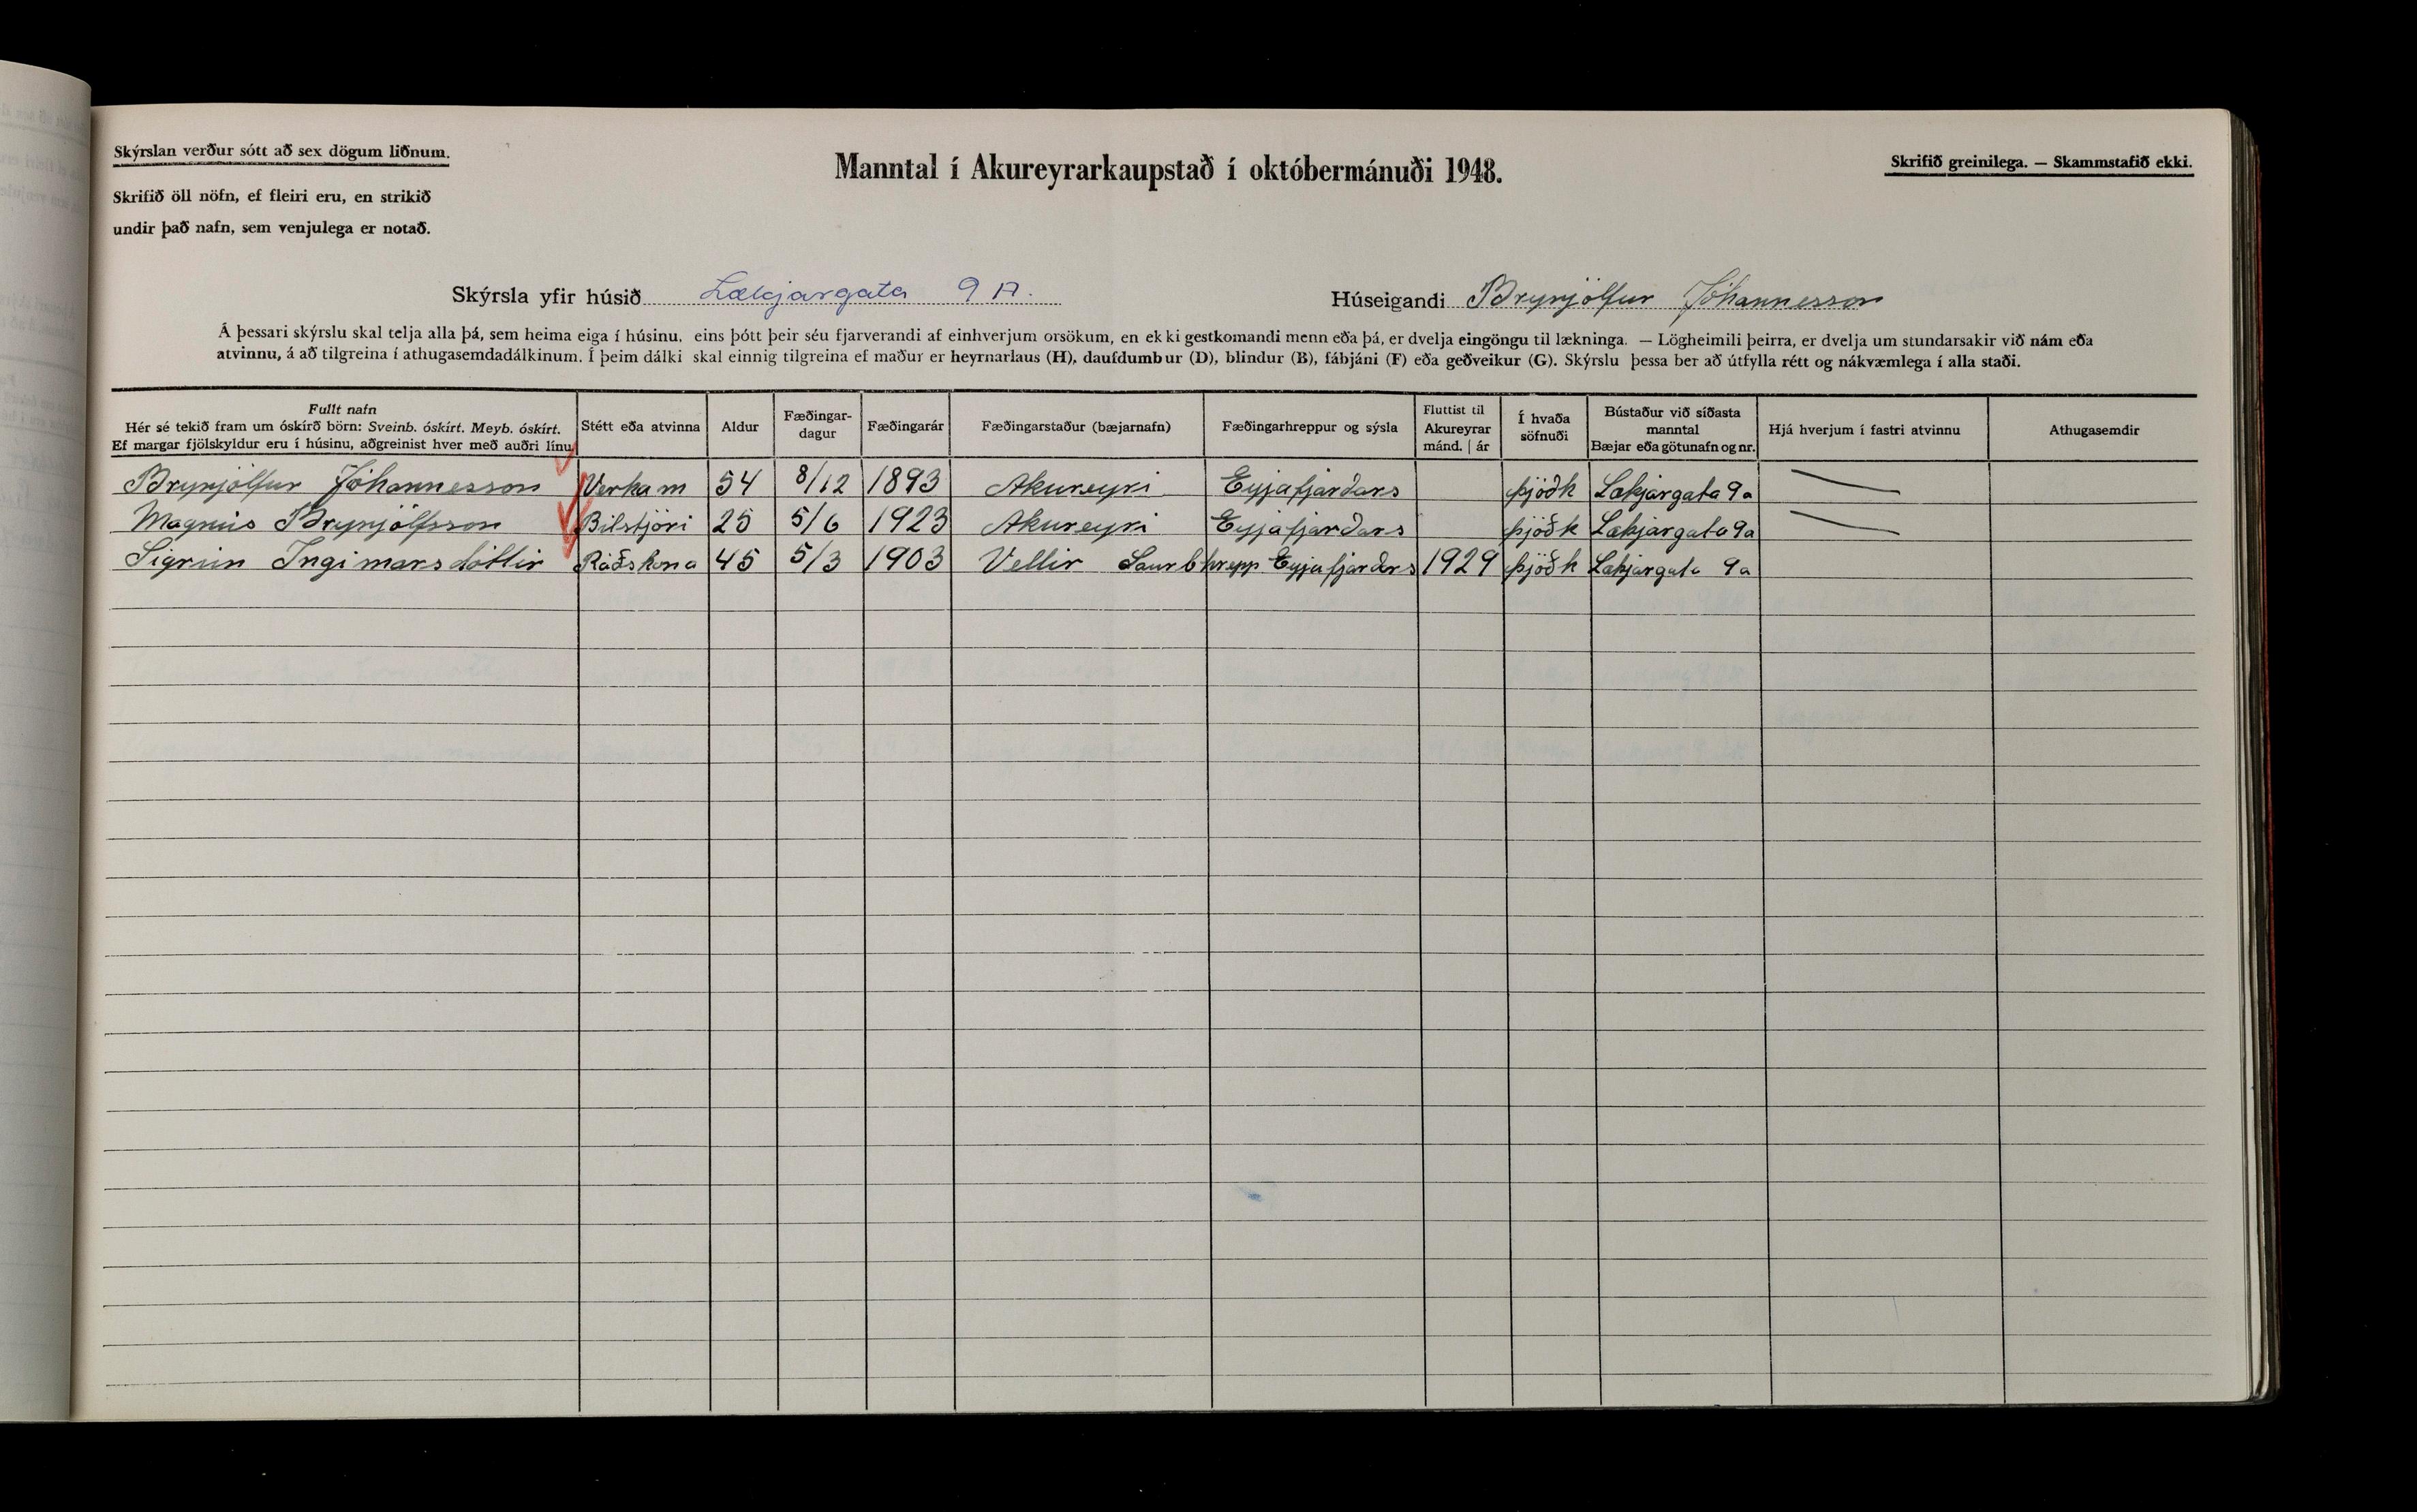 Skýrslan verður sótt að sex dögum liðnum.
Skrifið öll nöfn, ef fleiri eru, en strikið
undir það nafn, sem venjulega er notað.
Manntal í Akureyrarkaupstað í októbermánuði 1948.
Skrifið greinilega. — Skammstafið ekki.
Skýrsla yfir húsið Lækjargata 9 A. Húseigandi Brynjólfur Jóhannesson
Á þessari skýrslu skal telja alla þá, sem heima eiga í húsinu, eins þótt þeir séu fjarverandi af einhverjum orsökum, en ekki gestkomandi menn eða þá, er dvelja eingöngu til lækninga. — Lögheimili þeirra, er dvelja um stundarsakir við nám eða
atvinnu, á að tilgreina í athugasemdadálkinum. Í þeim dálki skal einnig tilgreina ef maður er heyrnarlaus (H), daufdumbur (D), blindur (B), fábjáni (F) eða geðveikur (G). Skýrslu þessa ber að útfylla rétt og nákvæmlega í alla staði.
Fullt nafn
Hér sé tekið fram um óskírð börn: Sveinb. óskírt. Meyb. óskírt.
Ef margar fjölskyldur eru í húsinu, aðgreinist hver með auðri línu
Stétt eða atvinna
Aldur
Fæðingar-
dagur
Fæðingarár
Fæðingarstaður (bæjarnafn)
Fæðingarhreppur og sýsla
Fluttist til
Akureyrar
mánd. | ár
Í hvaða
söfnuði
Bústaður við síðasta
manntal
Bæjar eða götunafn og nr.
Hjá hverjum í fastri atvinnu
Athugasemdir
Brynjólfur Jóhannesson Verkam 54 8/12 1893 Akureyri Eyjafjarðars þjóðk Lækjargata 9a
Magnús Brynjólfsson Bilstjóri 25 5/6 1923 Akureyri Eyjafjarðars þjóðk Lækjargata 9a
Sigrún Ingimarsdóttir Ráðskona 45 5/3 1903 Vellir Saurbhrepp Eyjafjarðars 1929 þjóðk Lækjargata 9a